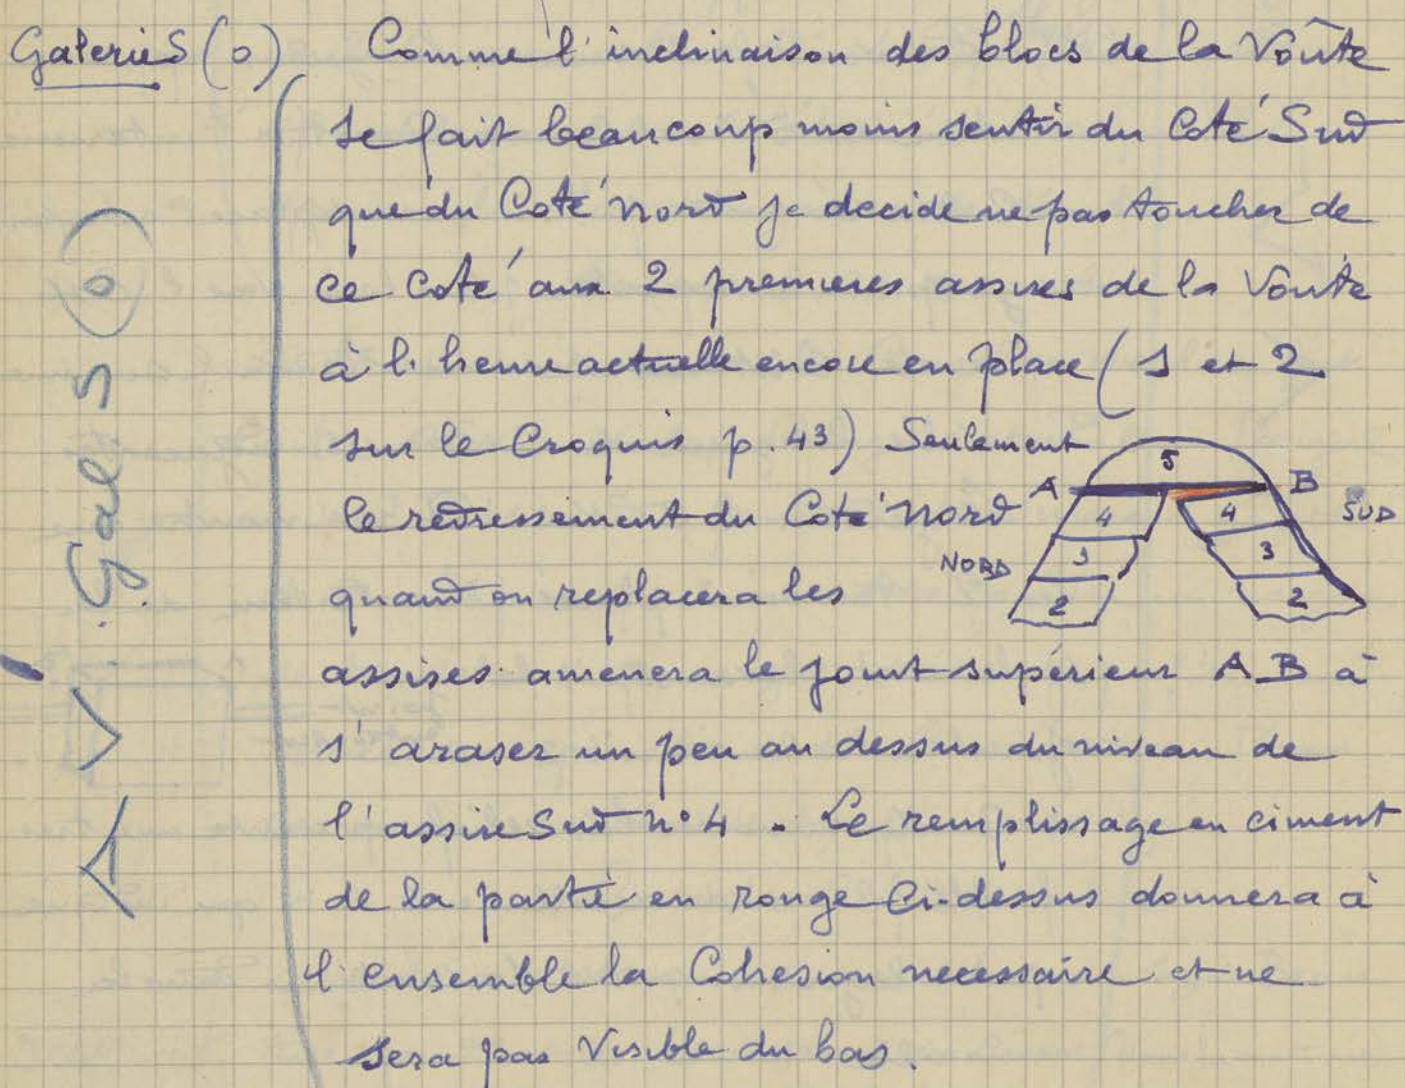 Galeries (o) Comme l'inclinaison des blocs de la Voûte
se fait beaucoup moins sentir du Coté Sud
que du Coté nord je decide ne pas toucher de
ce Coté aux 2 premieres assises de la Voute
à l'heure actuelle encore en place (1 et 2
sur le Croquis p. 43) Seulement
le redressement du Coté nord
quand on replacera les
assises amenera le joint supérieur AB à
s'araser un peu au dessus du niveau de
l'assise Sud n° 4 - Le remplissage en ciment
de la partie en rouge Ci-dessus donnera à
l'ensemble la Cohesion necessaire et ne
sera pas Visible du bas.
5
A B
4 4
NORD SUD
3 3
2 2
Gal S (o)